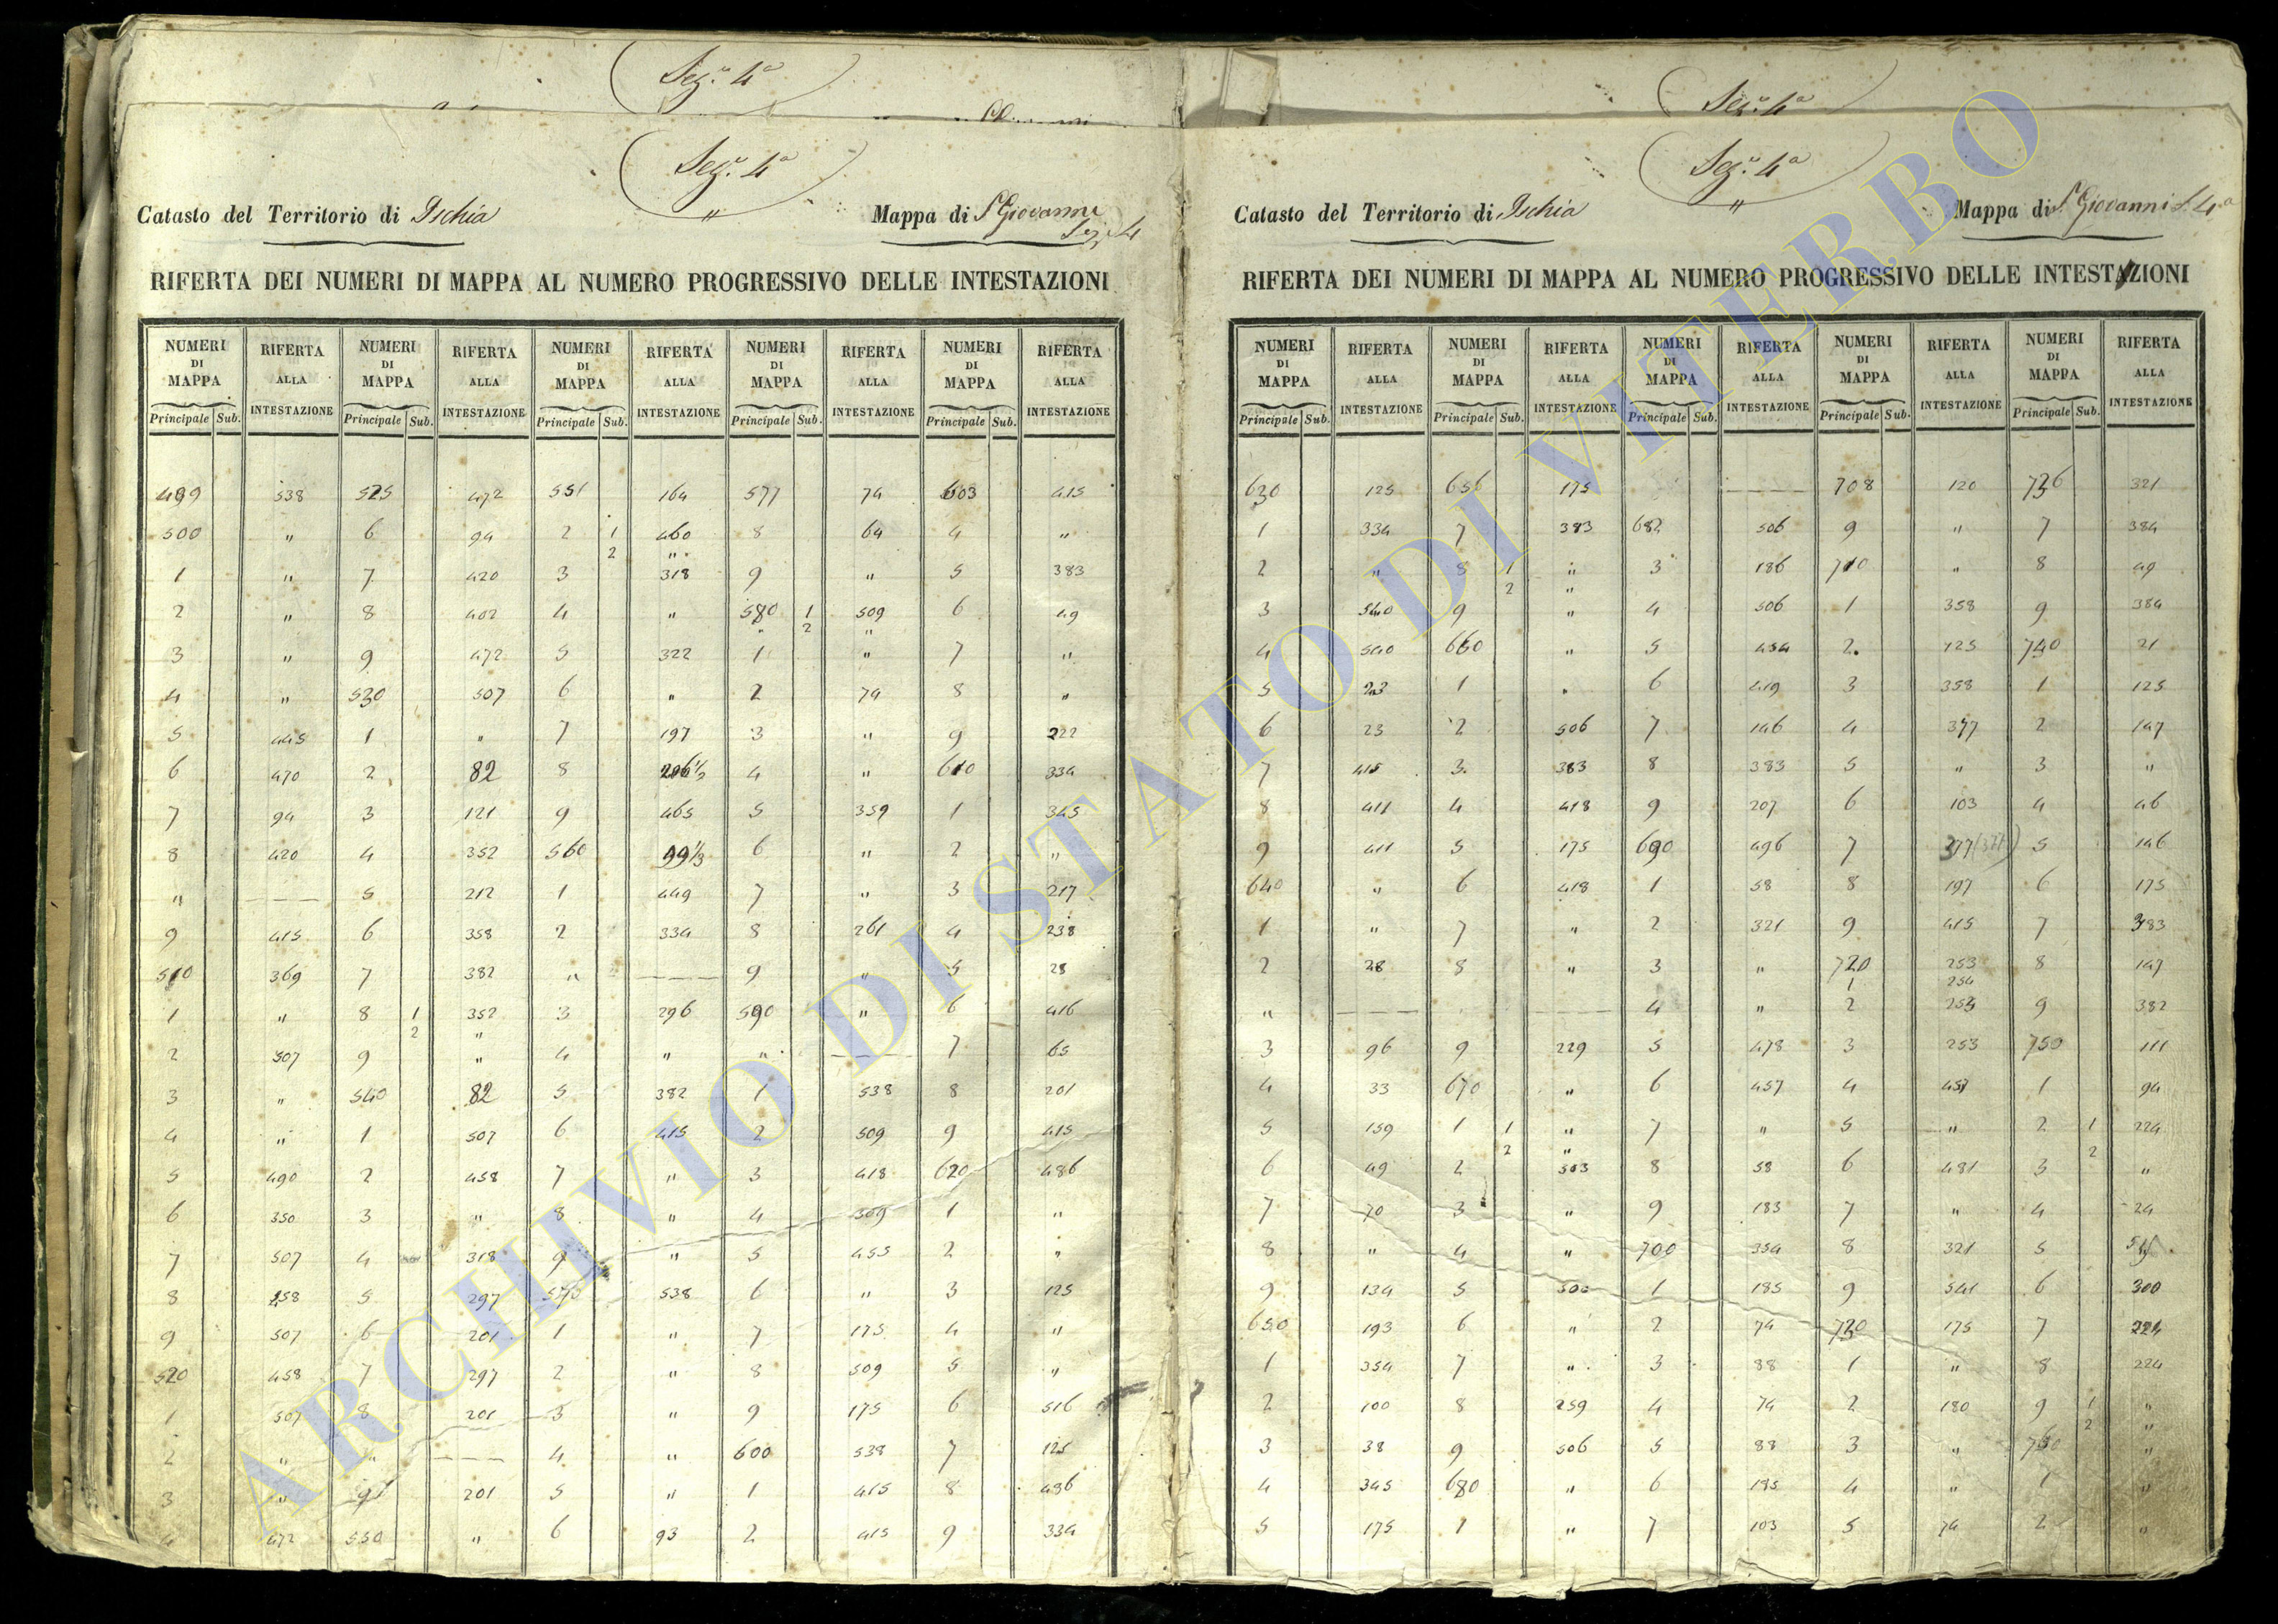 Sez.e 4a
Sez.e 4a
Sez.e 4a
Catasto del Territorio di Ischia
Mappa di S Giovanni
Sez. 4
RIFERTA DEI NUMERI DI MAPPA AL NUMERO PROGRESSIVO DELLE INTESTAZIONI
NUMERI DI MAPPA RIFERTA ALLA INTESTAZIONE NUMERI DI MAPPA RIFERTA ALLA INTESTAZIONE NUMERI DI MAPPA RIFERTA ALLA INTESTAZIONE NUMERI DI MAPPA RIFERTA ALLA INTESTAZIONE NUMERI DI MAPPA RIFERTA ALLA INTESTAZIONE
Principale Sub. Principale Sub. Principale Sub. Principale Sub. Principale Sub.
499 538 525 472 551 164 577 74 603 415
500 " 6 94 2 1 460 8 64 4 "
2 "
1 " 7 420 3 318 9 " 5 383
2 " 8 402 4 " 580 1 509 6 49
2 "
3 " 9 472 5 322 1 " 7 "
4 " 530 507 6 " 2 74 8 "
5 445 1 " 7 197 3 " 9 222
6 470 2 82 8 206 1/2 4 " 610 334
7 94 3 121 9 465 5 359 1 345
8 420 4 352 560 99 1/3 6 " 2 "
" — 5 212 1 449 7 " 3 217
9 415 6 358 2 334 8 261 4 238
510 369 7 382 " — 9 " 5 28
1 " 8 1 352 3 296 590 " 6 416
2 "
2 507 9 " 4 " " — 7 65
3 " 540 82 5 382 1 538 8 201
4 " 1 507 6 415 2 509 9 415
5 490 2 458 7 " 3 418 620 486
6 350 3 " 8 " 4 369 1 "
7 507 4 318 9 " 5 455 2 "
8 258 5 297 570 538 6 " 3 125
9 507 6 201 1 " 7 175 4 "
520 458 7 297 2 " 8 509 5 "
1 507 8 201 3 " 9 175 6 516
2 " " — 4 " 600 538 7 125
3 " 9 201 5 " 1 415 8 486
4 472 550 " 6 93 2 415 9 334
Sez.e 4a
Catasto del Territorio di Ischia
Mappa di S. Giovanni S. 4a
RIFERTA DEI NUMERI DI MAPPA AL NUMERO PROGRESSIVO DELLE INTESTAZIONI
NUMERI DI MAPPA RIFERTA ALLA INTESTAZIONE NUMERI DI MAPPA RIFERTA ALLA INTESTAZIONE NUMERI DI MAPPA RIFERTA ALLA INTESTAZIONE NUMERI DI MAPPA RIFERTA ALLA INTESTAZIONE NUMERI DI MAPPA RIFERTA ALLA INTESTAZIONE
Principale Sub. Principale Sub. Principale Sub. Principale Sub. Principale Sub.
630 125 656 175 — 708 120 736 321
1 334 7 383 682 506 9 " 7 384
2 " 8 1 " 3 186 710 " 8 49
2 "
3 540 9 " 4 506 1 358 9 384
4 540 660 " 5 454 2 125 740 21
5 23 1 " 6 419 3 358 1 125
6 23 2 506 7 146 4 377 2 147
7 415 3 383 8 383 5 " 3 "
8 411 4 418 9 207 6 103 4 46
9 411 5 175 690 496 7 377 (377) 5 146
640 " 6 418 1 58 8 197 6 175
1 " 7 " 2 321 9 415 7 383
2 28 8 " 3 " 720 253 8 147
1 254
" — — 4 " 2 253 9 382
3 96 9 229 5 478 3 253 750 111
4 33 670 " 6 457 4 457 1 94
5 159 1 1 " 7 " 5 " 2 1 224
2 " 2
6 49 2 503 8 58 6 481 3 "
7 70 3 " 9 183 7 " 4 24
8 " 4 " 700 354 8 321 5
9 134 5 506 1 185 9 541 6 300
650 193 6 " 2 74 730 175 7 224
1 354 7 " 3 88 1 " 8 224
2 100 8 259 4 74 2 180 9 1 "
2 "
3 38 9 506 5 88 3 " 760 "
4 345 680 " 6 185 4 " 1 "
5 175 1 " 7 103 5 74 2 "
ARCHIVIO DI STATO DI VITERBO